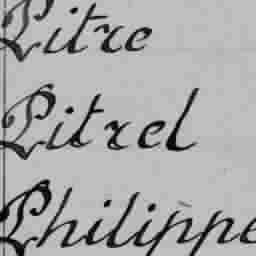 Pitre
Pitrel
Philippe